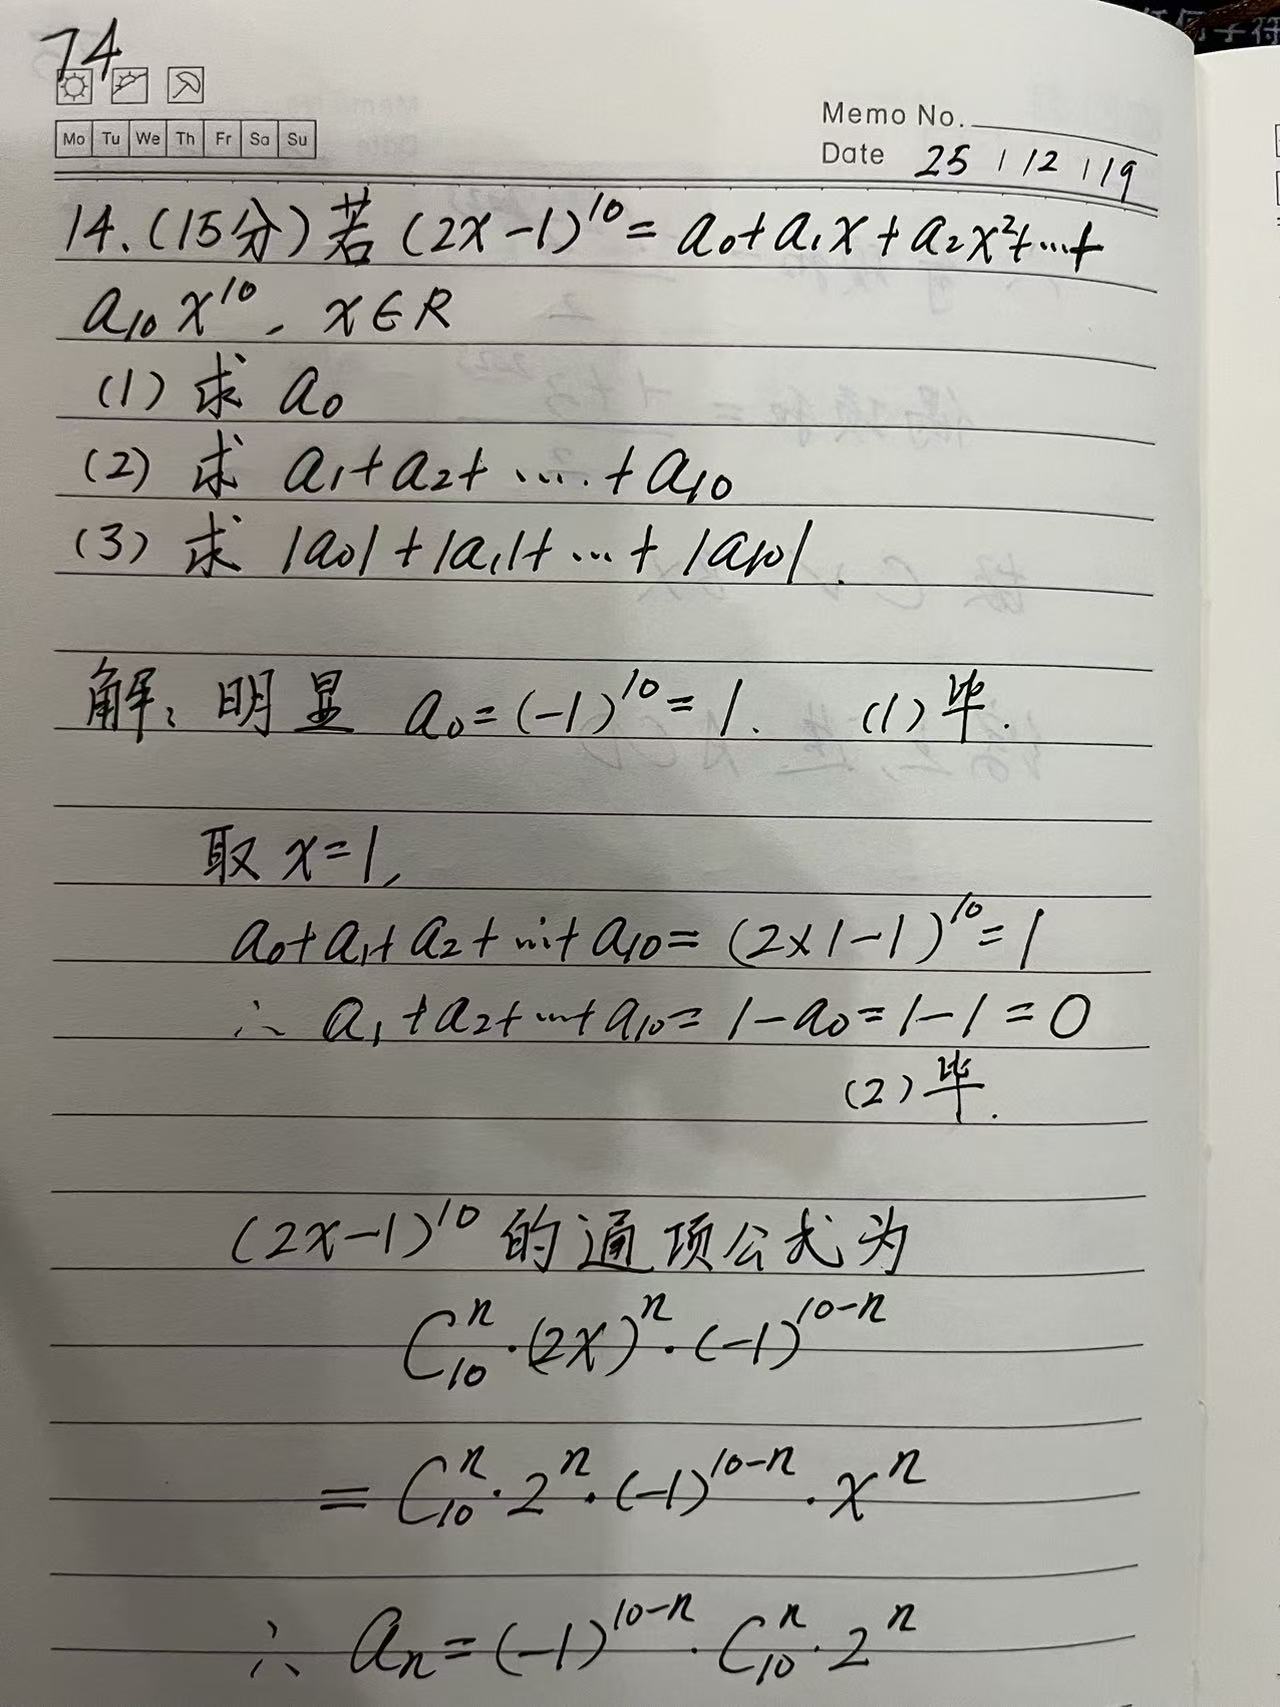 74
Mo Tu We Th Fr Sa Su
Memo No.
Date 25 / 12 / 19
14.(15分)若(2x-1)^10=a₀+a₁x+a₂x²+…+
a₁₀x^10, x∈R
(1) 求 a₀
(2) 求 a₁+a₂+…+a₁₀
(3) 求 |a₀|+|a₁|+…+|a₁₀|.
解:明显 a₀=(-1)^10=1. (1)毕.
取x=1,
a₀+a₁+a₂+…+a₁₀=(2×1-1)^10=1
∴ a₁+a₂+…+a₁₀=1-a₀=1-1=0
(2)毕.
(2x-1)^10的通项公式为
C₁₀^n·(2x)^n·(-1)^(10-n)
=C₁₀^n·2^n·(-1)^(10-n)·x^n
∴ aₙ=(-1)^(10-n)·C₁₀^n·2^n